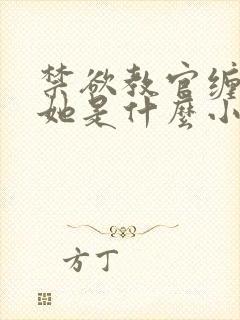 禁欲教官缠
她是什麼小
方丁